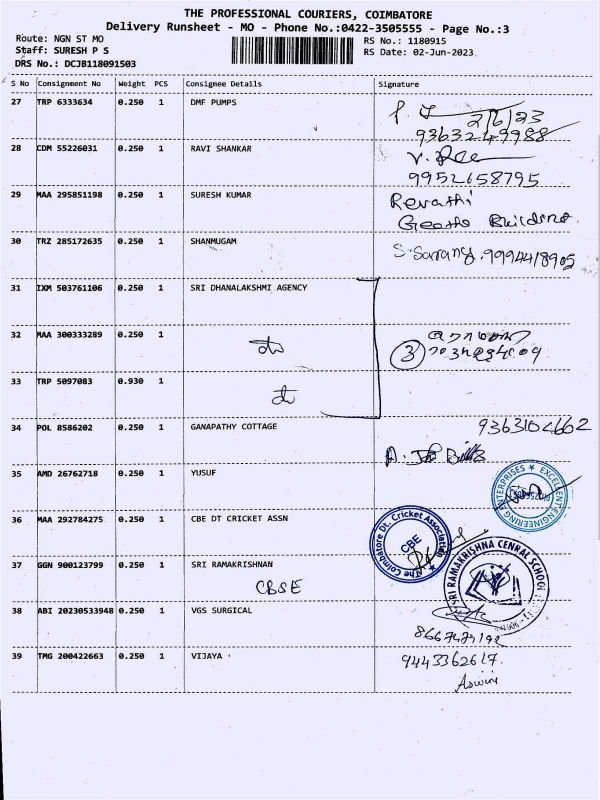 THE PROFESSIONAL COURIERS, COIMBATORE
Delivery Runsheet - MO - Phone No.:0422-3505555 - Page No.:3
Route: NGN ST MO
Staff: SURESH P S
DRS No.: DCJB118091503
RS No.: 1180915
RS Date: 02-Jun-2023
S No Consignment No Weight PCS Consignee Details Signature
27 TRP 6333634 0.250 1 DMF PUMPS
2/6/23
9363249988
28 CDM 55226031 0.250 1 RAVI SHANKAR
9952658795
29 MAA 295851198 0.250 1 SURESH KUMAR Revathi
30 TRZ 285172635 0.250 1 SHANMUGAM 9994418905
31 IXM 503761106 0.250 1 SRI DHANALAKSHMI AGENCY
32 MAA 300333289 0.250 1
3
33 TRP 5097083 0.930 1
34 POL 8586202 0.250 1 GANAPATHY COTTAGE
35 AMD 26762718 0.250 1 YUSUF
EXCELLENT ENGINEERING ENTERPRISES
36 MAA 292784275 0.250 1 CBE DT CRICKET ASSN
The Coimbatore Dt. Cricket Association
CBE
37 GGN 900123799 0.250 1 SRI RAMAKRISHNAN
CBSE
SRI RAMAKRISHNA CENRAL SCHOOL
38 ABI 20230533948 0.250 1 VGS SURGICAL
39 TMG 200422663 0.250 1 VIJAYA
9443362617.
Aswini